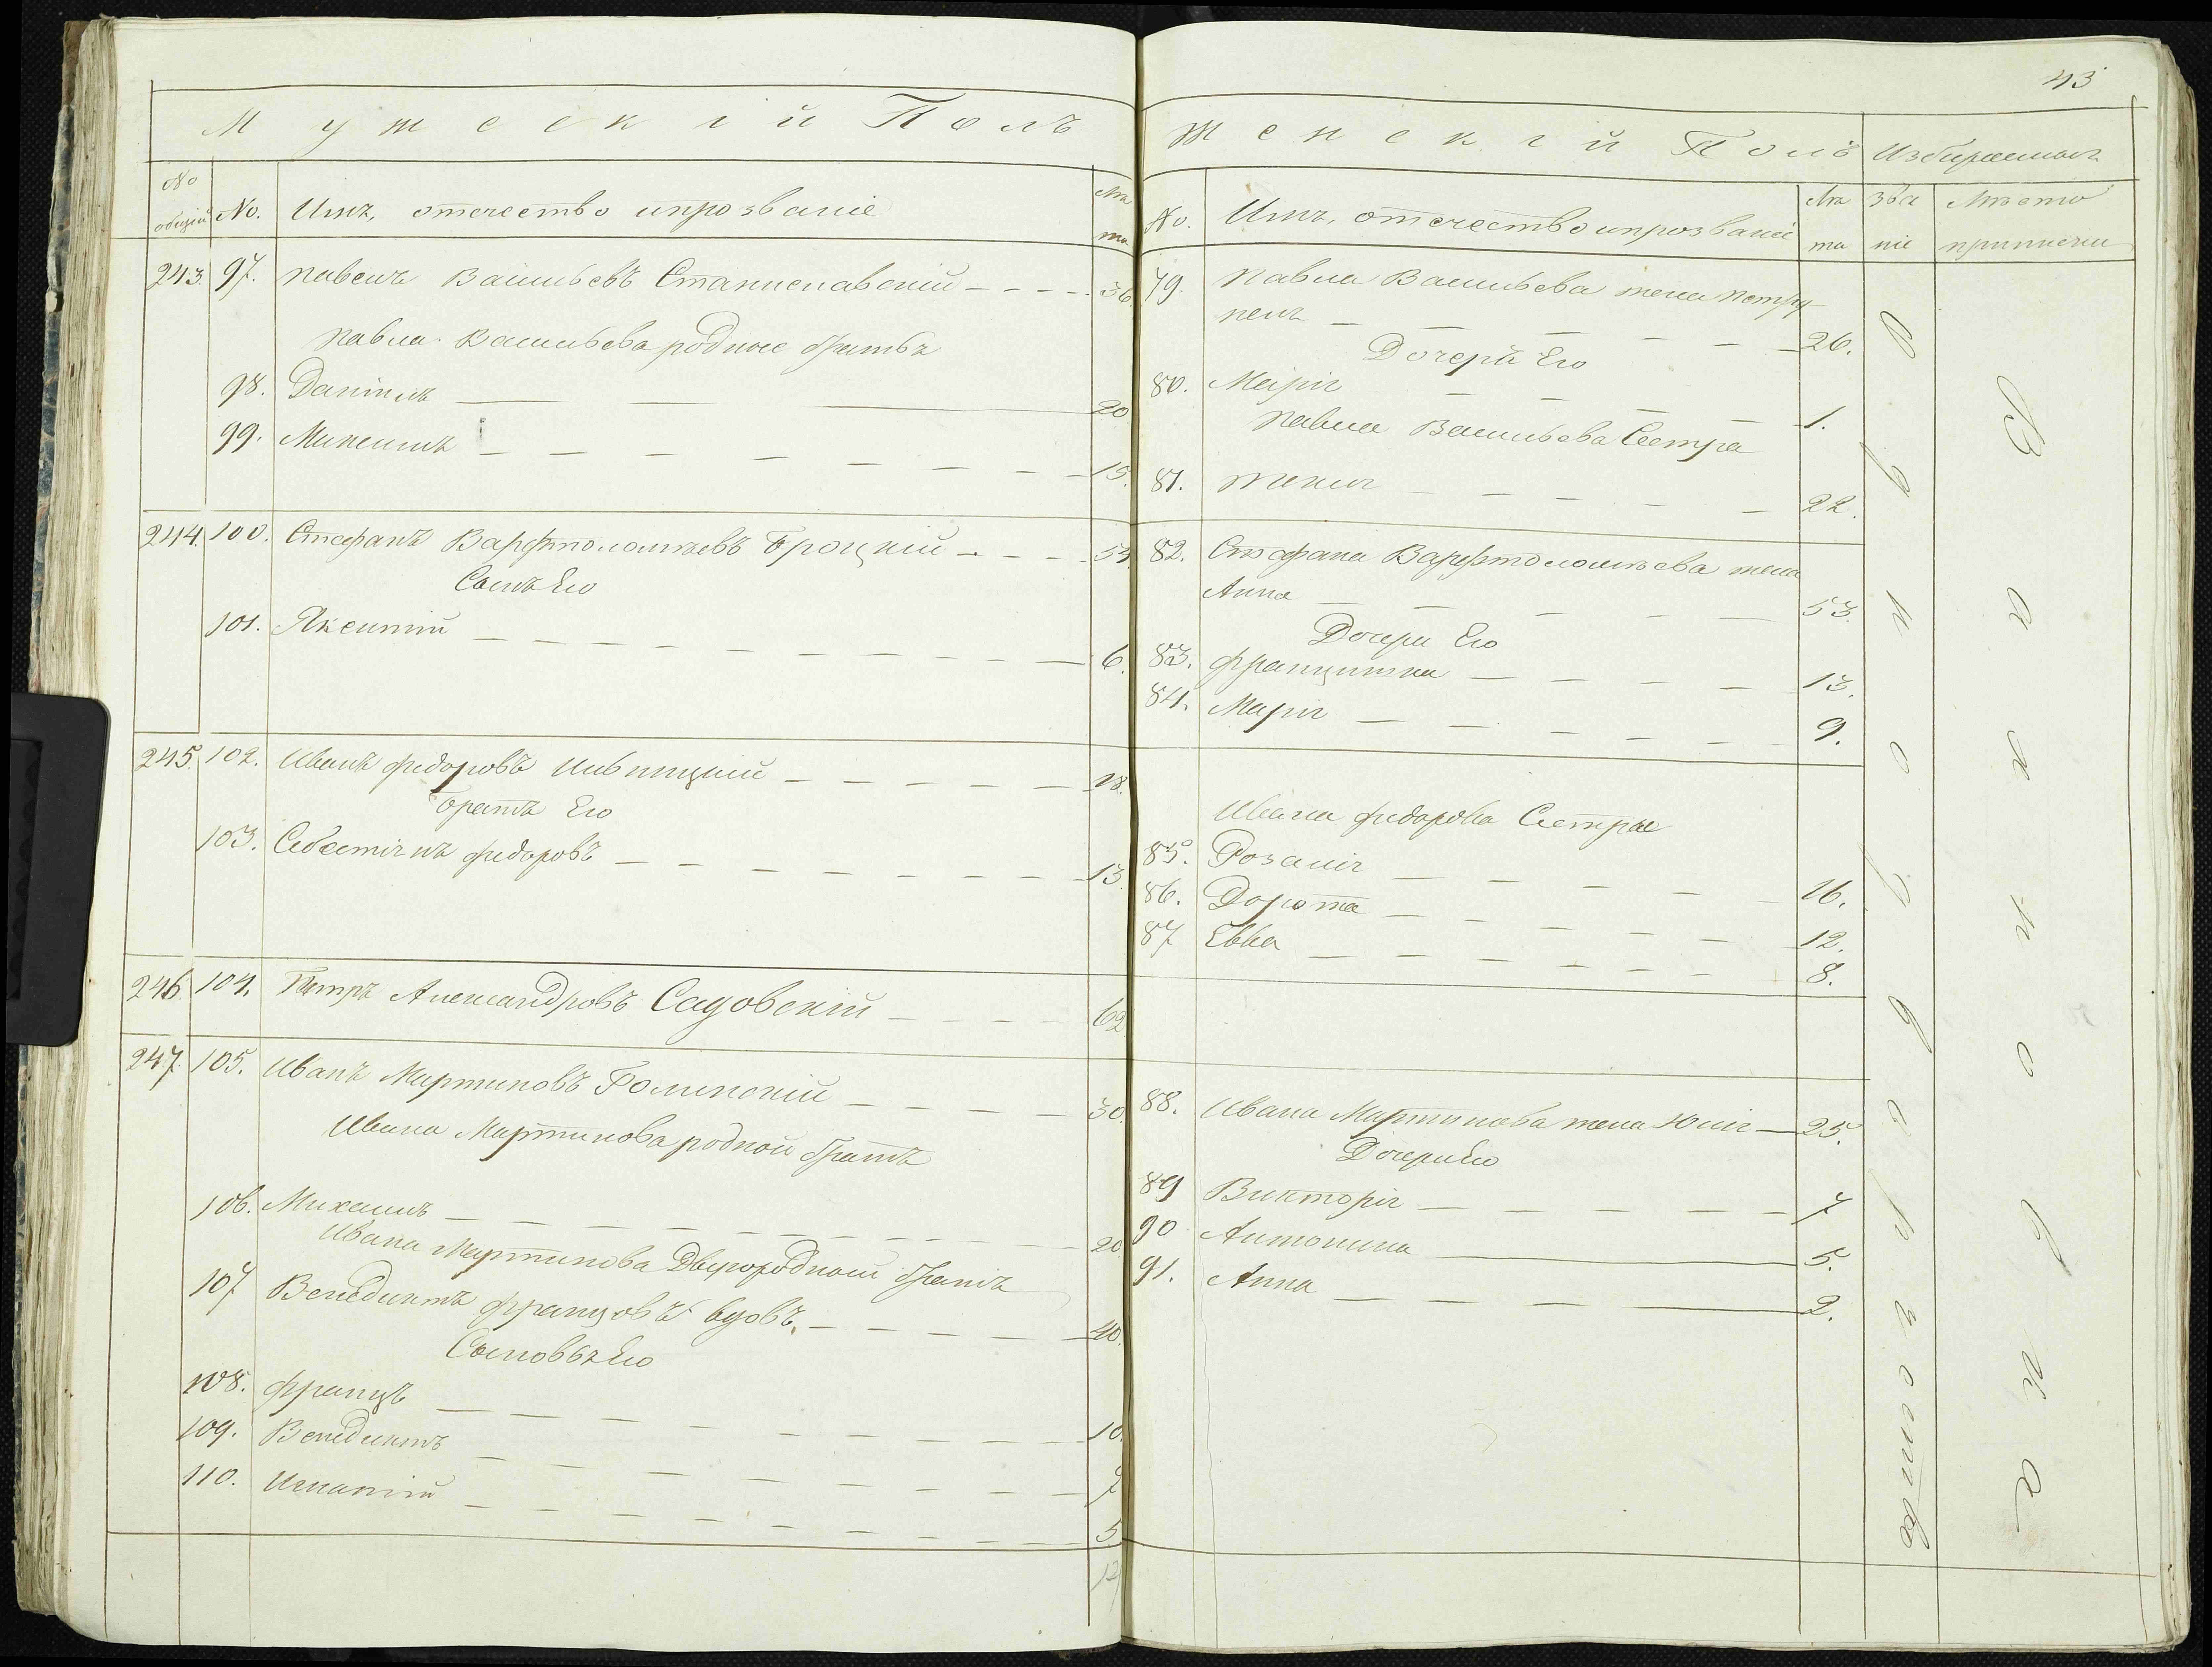 43
Мужескій Полъ
№ общій
№.
Имя, отечество ипрозваніе
Лѣта
243. 97. Павелъ Васильевъ Станиславскій 36.
Павла Васильева родные братья
98. Даніилъ 20
99. Максимъ 15.
244. 100. Стефанъ Варфтоломѣевъ Броцкій 54.
Сынъ Его
101. Яксентій 6.
245. 102. Иванъ Федоровъ 18.
Братъ Его
103. Себестіянъ Федоровъ 13.
246. 104. Петръ Александровъ Садовскій 62
247. 105. Иванъ Мартиновъ 30.
Ивана Мартинова родной братъ
106. Михаилъ 20.
Ивана Мартинова Двуюродный братъ
107 Венедиктъ Францовъ вдовъ. 40.
Сыновья Его
108. Францъ 10.
109. Венедиктъ 7
110. Игнатій 5
Женскій Полъ
Избираемыя
№.
Имя, отечество ипрозваніе
Лѣта
званіе
Мѣсто приписки
79. Павла Васильева жена Петру
нель 26.
Дочеръ Его
80. Марія 1.
Павла Васильева Сестра
81. Текля 22.
82. Стефана Варфтоломѣева жена
Анна 53.
Дочери Его
83. Францишка 13.
84. Марія 9.
Ивана Федорова Сестры
85. Розалія 16.
86. Дорота 12.
87 Евва 8.
88. Ивана Мартинова жена Юлія 25.
Дочери Его
89 Викторія 7
90 Антонина 5.
91. Анна 2.
Однодворчество